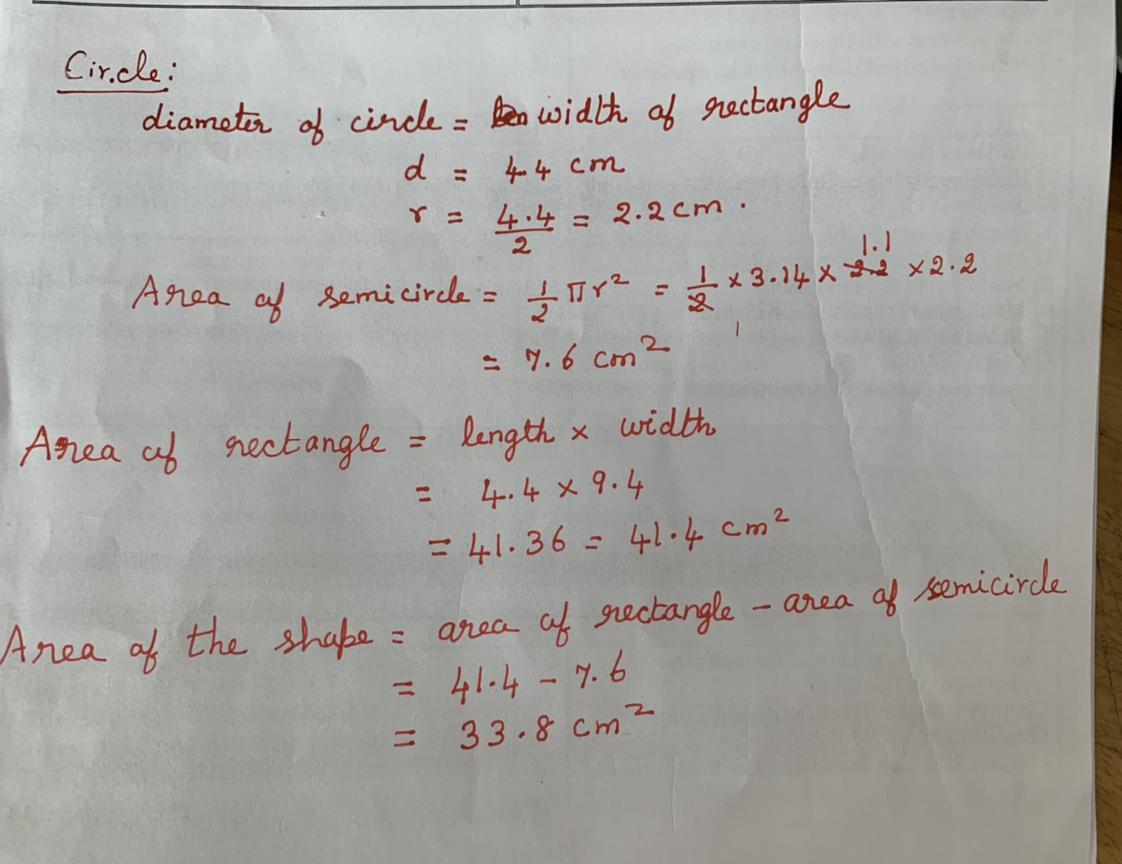 Circle:
diameter of circle = width of rectangle
d = 4.4 cm
r = 4.4/2 = 2.2 cm.
1.1
Area of semicircle = 1/2 πr² = 1/2 × 3.14 × 2.2 × 2.2
1
= 7.6 cm²
Area of rectangle = length × width
= 4.4 × 9.4
= 41.36 = 41.4 cm²
Area of the shape = area of rectangle - area of semicircle
= 41.4 - 7.6
= 33.8 cm²